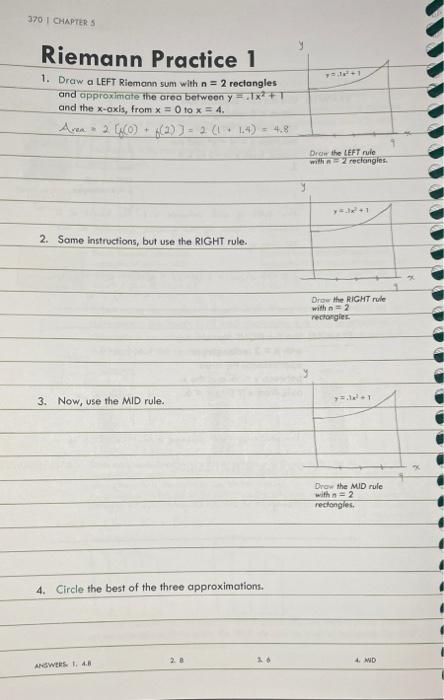 370 | CHAPTER 5
Riemann Practice 1
1. Draw a LEFT Riemann sum with n = 2 rectangles
and approximate the area between y = .1x² + 1
and the x-axis, from x = 0 to x = 4.
Area = 2 [f(0) + f(2)] = 2 (1 + 1.4) = 4.8
y
y = .1x² + 1
Draw the LEFT rule
with n = 2 rectangles.
2. Same instructions, but use the RIGHT rule.
y
y = .1x² + 1
x
Draw the RIGHT rule
with n = 2
rectangles.
3. Now, use the MID rule.
y
y = .1x² + 1
x
Draw the MID rule
with n = 2
rectangles.
4. Circle the best of the three approximations.
ANSWERS: 1. 4.8 2. 8 3. 6 4. MID